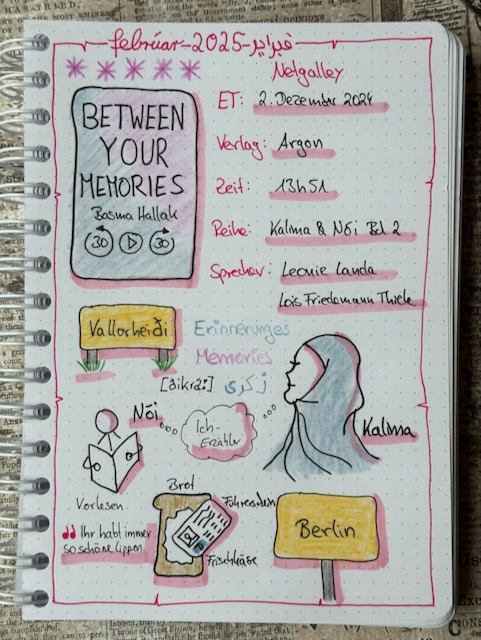 februar-2025-فبراير
Netgalley
BETWEEN
YOUR
MEMORIES
Basma Hallak
30
30
ET: 2. Dezember 2024
Verlag: Argon
Zeit: 13h51
Reihe: Kalima & Nói Bd 2
Sprecher: Leonie Landa
Lois Friedemann Thiele
Vallorheiði
Erinnerunges
Memories
[ðikra:] ذكرى
Nói
Ich-
Erzähler
Kalima
Vorlesen
Ihr habt immer
so schöne Lippen.
Brot
Führerschein
Frischkäse
Berlin